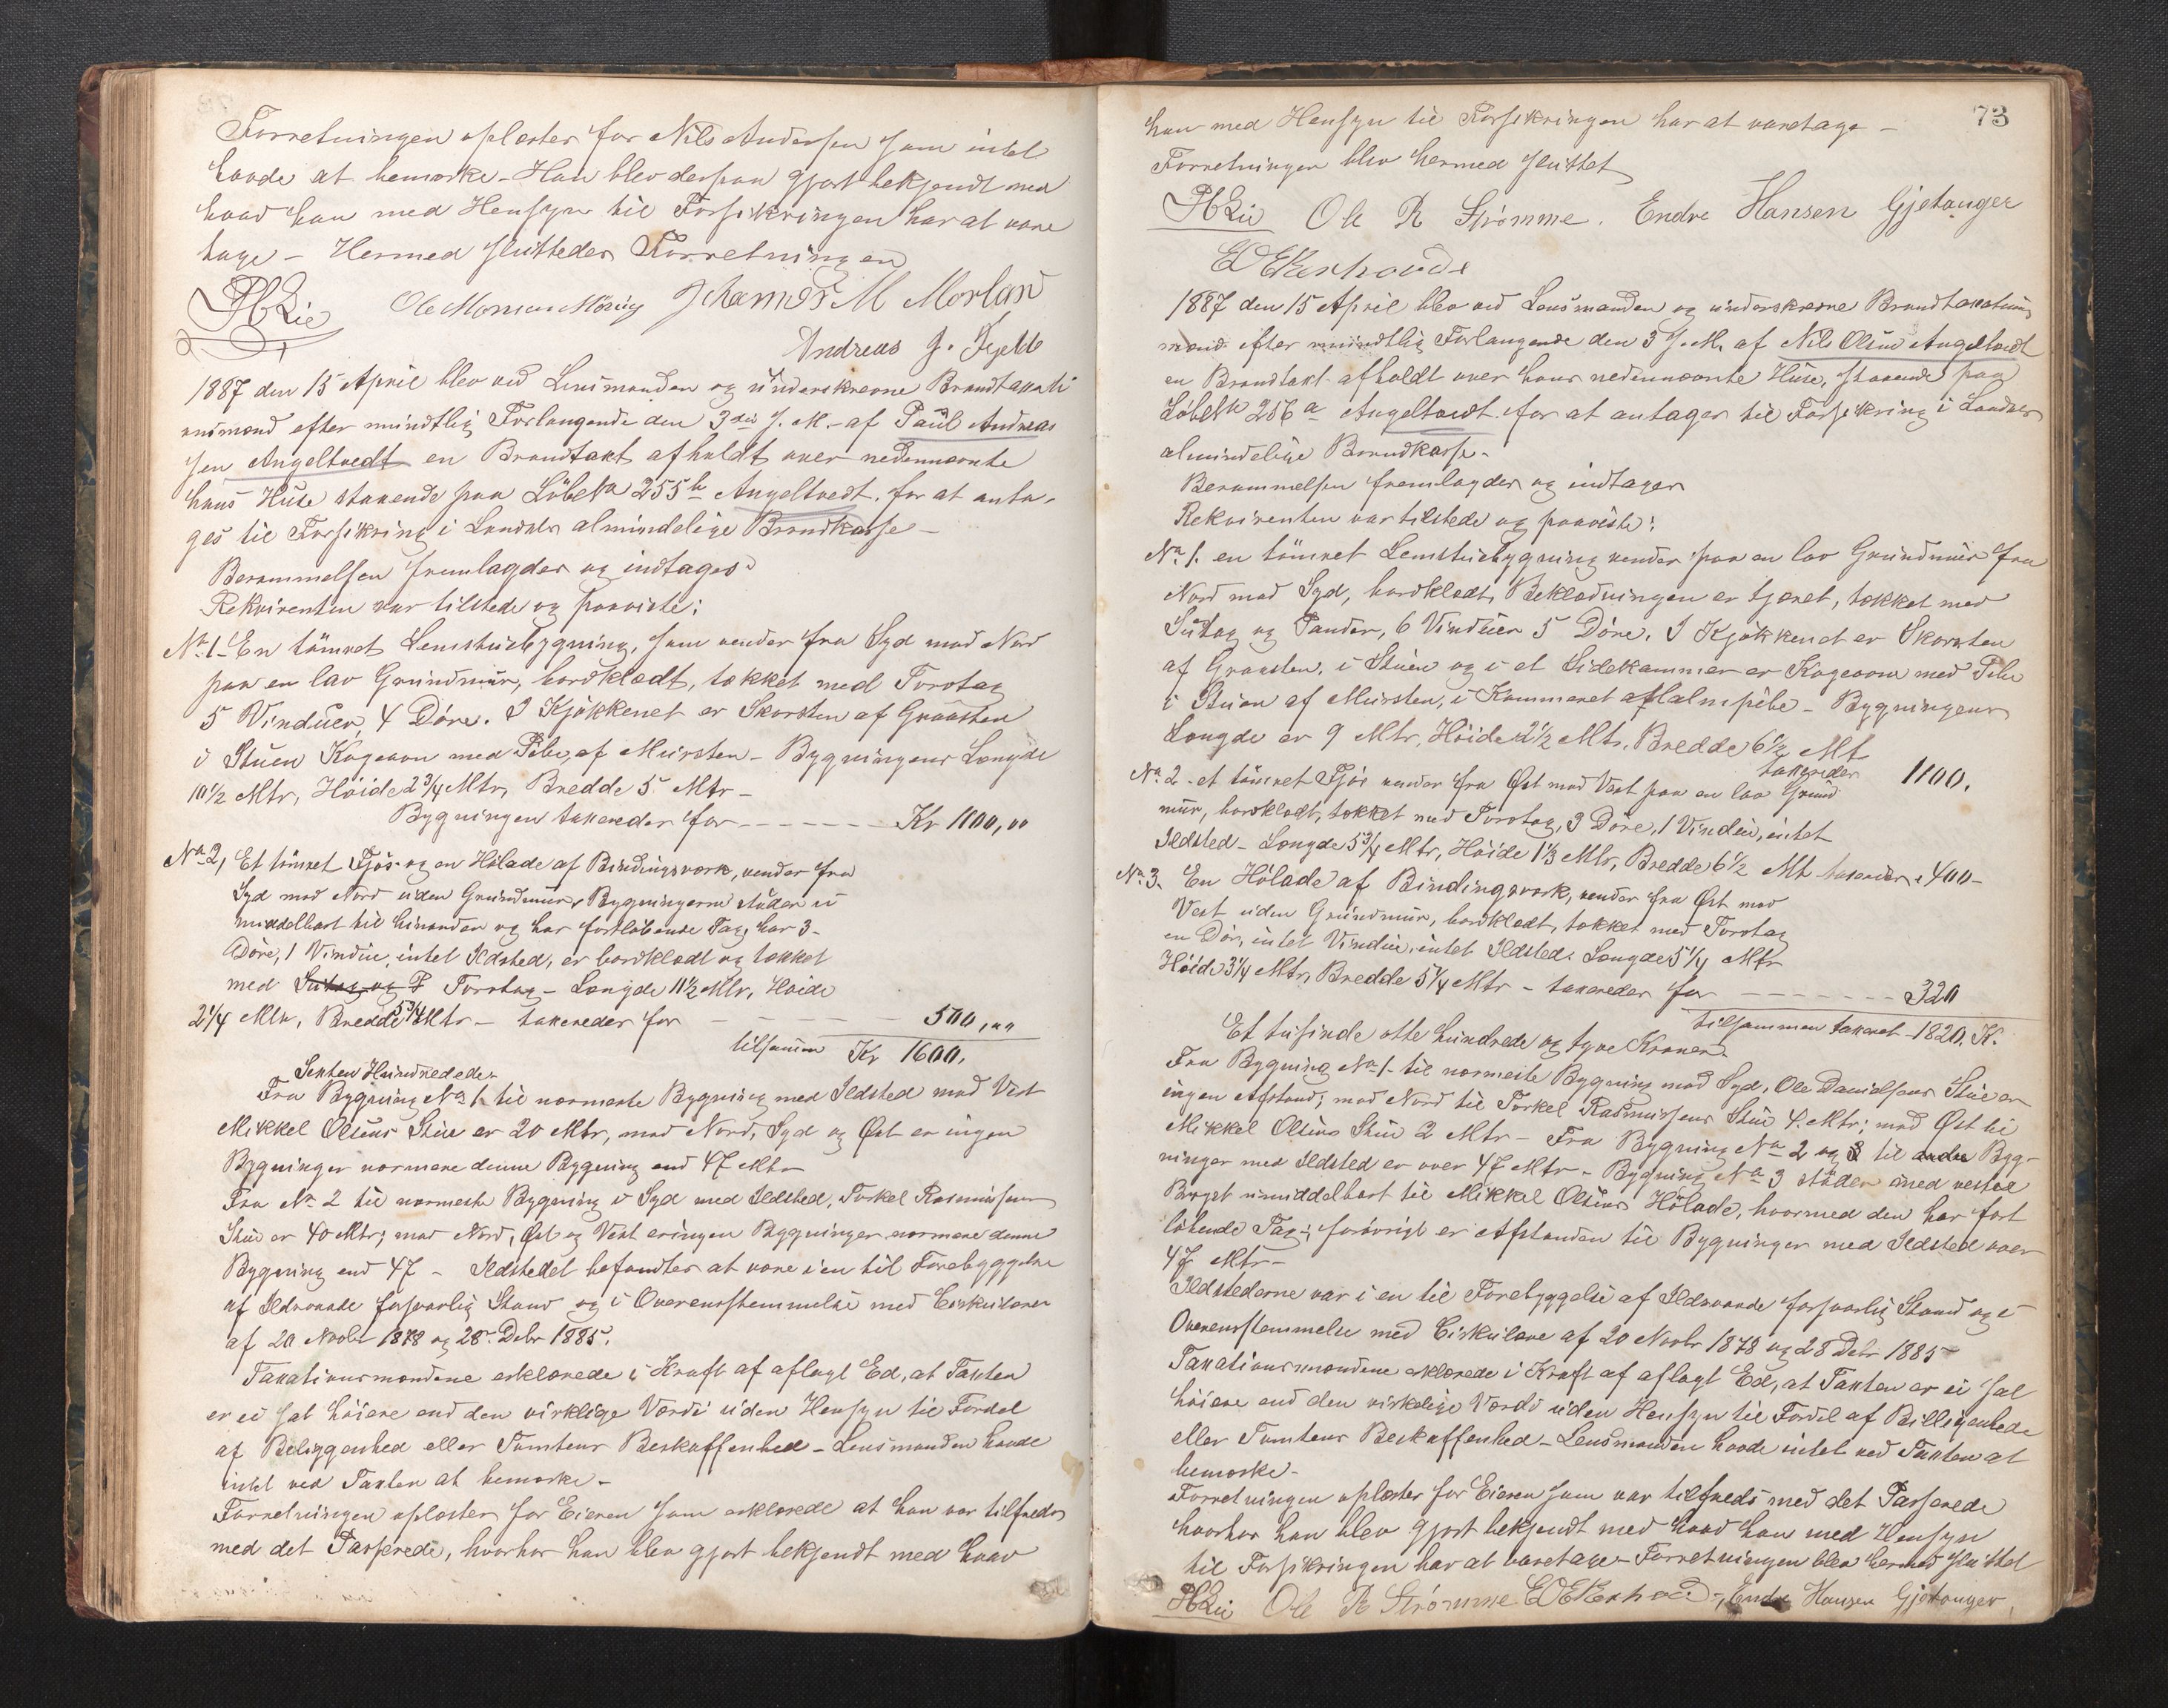 Forretningen oplæstes for Nils Andersen som intet
havde at bemærke - Han blev derpaa gjort bekjendt med
hvad han med Hensyn til Forsikringen har at vare
tage - Hermed sluttedes Forretningen
HLie Ole Monsen Johannes M Morland
Andreas J. Fjeld
1887 den 15 April blev ved Lensmanden og underskrevne Brandtaxati
onsmænd efter mundtlig Forlangende den 3die d. M. af Paul Andreas
sen Angeltvedt en Brandtaxt afholdt over nedennævnte
hans Huse staaende paa Løbe No 255b Angeltvedt, for at anta-
ges til Forsikring i Landets almindelige Brandkasse -
Berammelsen fremlagdes og indtages.
Rekvirenten var tilstede og paaviste:
No 1. En tømret Lemstuebygning, som vender fra Syd mod Nord
paa en lav Grundmur, bordklædt, tækket med Torvtag
5 Vinduer, 4 Døre. I Kjøkkenet er Skorsten af Graasten
i Stuen Kogeovn med Pibe af Mursten - Bygningens Længde
10 1/2 Mtr, Høide 2 3/4 Mtr, Bredde 5 Mtr -
Bygningen taxeredes for - - - - - Kr 1100,00
No 2, Et tømret Fjøs og en Hølade af Bindingsværk, vender fra
Syd mod Nord uden Grundmur, Bygningerne støder u
middelbart til hinanden og har fortløbende Tag, har 3-
Døre, 1 Vindue, intet Ildsted, er bordklædt og tækket
med Sutag og P Torvtag - Længde 11 1/2 Mtr, Høide
2 1/4 Mtr, Bredde 5 3/4 Mtr - taxeredes for - - - - 500,00
tilsammen Kr 1600,
Sexten Hundrede.
Fra Bygning No 1 til nærmeste Bygning med Ildsted mod Vest
Mikkel Olsens Stue er 20 Mtr, mod Nord, Syd og Øst er ingen
Bygninger nærmere denne Bygning end 47 Mtr
Fra No 2 til nærmeste Bygning i Syd med Ildsted, Torkel Rasmussens
Stue er 40 Mtr; mod Nord, Øst og Vest er ingen Bygninger nærmere denne
Bygning end 47 - Ildstedet befandtes at være i en til Forebyggelse
af Ildsvaade forsvarlig Stand og i Overensstemmelse med Cirkulærer
af 20 Novbr 1878 og 28 Debr 1885.
Taxationsmændene erklærede i Kraft af aflagt Ed, at Taxten
er ei sat høiere end den virkelige Værdi uden Hensyn til Fordel
af Beliggenhed eller Tomtens Beskaffenhed - Lensmanden havde
intet ved Taxten at bemærke -
Forretningen oplæstes for Eieren som erklærede at han var tilfreds
med det Passerede, hvorhos han blev gjort bekjendt med hvad
73
han med Hensyn til Forsikringen har at varetage -
Forretningen blev hermed sluttet
HLie Ole R Strømme. Endre Hansen Gjetanger
1887 den 15 April blev ved Lensmanden og underskrevne Brandtaxations
mænd efter mundtlig Forlangende den 3 d. M. af Nils Olsen Angeltvedt
en Brandtaxt afholdt over hans nedennævnte Huse, staaende paa
Løbe No 256a Angeltvedt for at antages til Forsikring i Landets
almindelige Brandkasse -
Berammelsen fremlagdes og indtages
Rekvirenten var tilstede og paaviste:
No 1. en tømret Lemstuebygning vender paa en lav Grundmur fra
Nord mod Syd, bordklædt, Beklædningen er tjæret, tækket med
Sutag og Pander, 6 Vinduer 5 Døre. I Kjøkkenet er Skorsten
af Graasten, i Stuen og i et Sidekammer er Kogeovn med Pibe
i Stuen af Mursten, i Kammeret af - Bygningens
Længde er 9 Mtr, Høide 2 1/2 Mtr, Bredde 6 1/2 Mt
taxeredes 1100.
No 2. et tømret Fjøs vender fra Øst mod Vest paa en lav Grund
mur, bordklædt, tækket med Torvtag, 3 Døre, 1 Vindu, intet
Ildsted - Længde 5 3/4 Mtr, Høide 1 1/3 Mtr, Bredde 6 1/2 Mt taxeredes 400-
No 3. En Hølade af Bindingsværk, vender fra Øst mod
Vest uden Grundmur, bordklædt, tækket med Torvtag
en Dør, intet Vindue, intet Ildsted. Længde 5 1/4 Mtr
Høide 3 1/4 Mtr, Bredde 5 1/4 Mtr - taxeredes for - - - - 320
tilsammen taxeret - 1820. Kr.
Et tusinde otte hundrede og tyve Kroner.
Fra Bygning No 1 til nærmeste Bygning mod Syd, Ole Danielsens Stue er
ingen Afstand; mod Nord til Torkel Rasmussens Stue 4. Mtr; mod Øst ti
Mikkel Olsens Stue 2 Mtr - Fra Bygning No 2 og 3 til andre Byg-
ninger med Ildsted er over 47 Mtr - Bygning No 3 støder med vestre
umiddelbart til Mikkel Olsens Hølade, hvormed den har fort
løbende Tag; forøvrigt er Afstanden til Bygninger med Ildsted over
47 Mtr -
Ildstederne var i en til Forebyggelse af Ildsvaade forsvarlig Stand og i
Overensstemmelse med Cirkulære af 20 Novbr 1878 og 28 Debr 1885
Taxationsmændene erklærede i Kraft af aflagt Ed, at Taxten er ei sat
høiere end den virkelige Værdi uden Hensyn til Fordel af Beliggenhed
eller Tomtens Beskaffenhed - Lensmanden havde intet ved Taxten at
bemærke -
Forretningen oplæstes for Eieren som var tilfreds med det Passerede
hvorhos han blev gjort bekjendt med hvad han med Hensyn
til Forsikringen har at varetage - Forretningen blev hermed sluttet
HLie Ole R Strømme Endre Hansen Gjetanger,